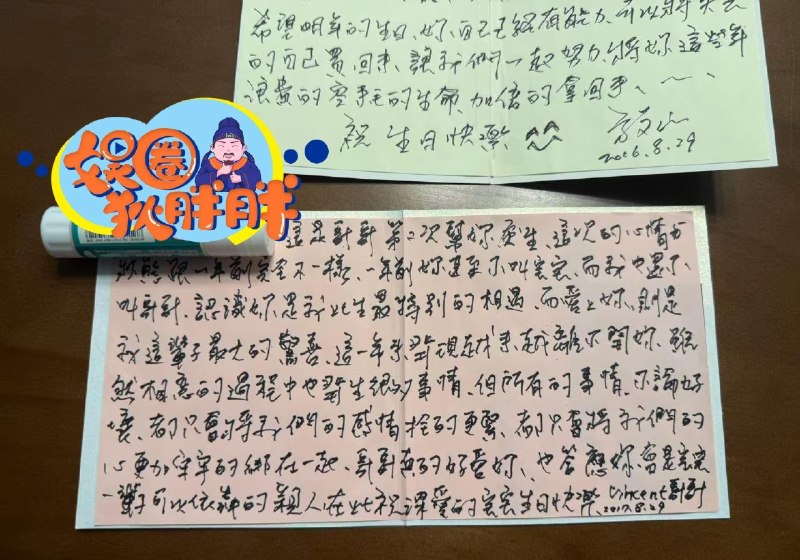 希望明年的生日、妳自己已經有能力可以將失去
的自己買回來、讓我們一起努力將妳這些年
浪費的的生命加倍的拿回來、~、
祝 生日快樂 ^^
2016.8.29
娱圈狄胖胖
這是哥哥第二次幫妳慶生、這次的心情与
狀態跟一年前完全不一樣、一年前妳還不叫寶寶、而我也還不
叫哥哥、認識妳是我此生最特別的相遇、而愛上妳、則是
我這輩子最大的驚喜、這一年來發現越來越離不開妳、雖
然相戀的過程中也發生很多事情、但所有的事情、不論好
壞、都只會將我們的感情拴的更緊、都只會將我們的
心更加牢牢的綁在一起、哥哥真的好愛妳、也答應妳、會是寶寶
一輩子可以依靠的親人在此祝深愛的寶寶生日快樂 Vincent哥哥
2017.8.29